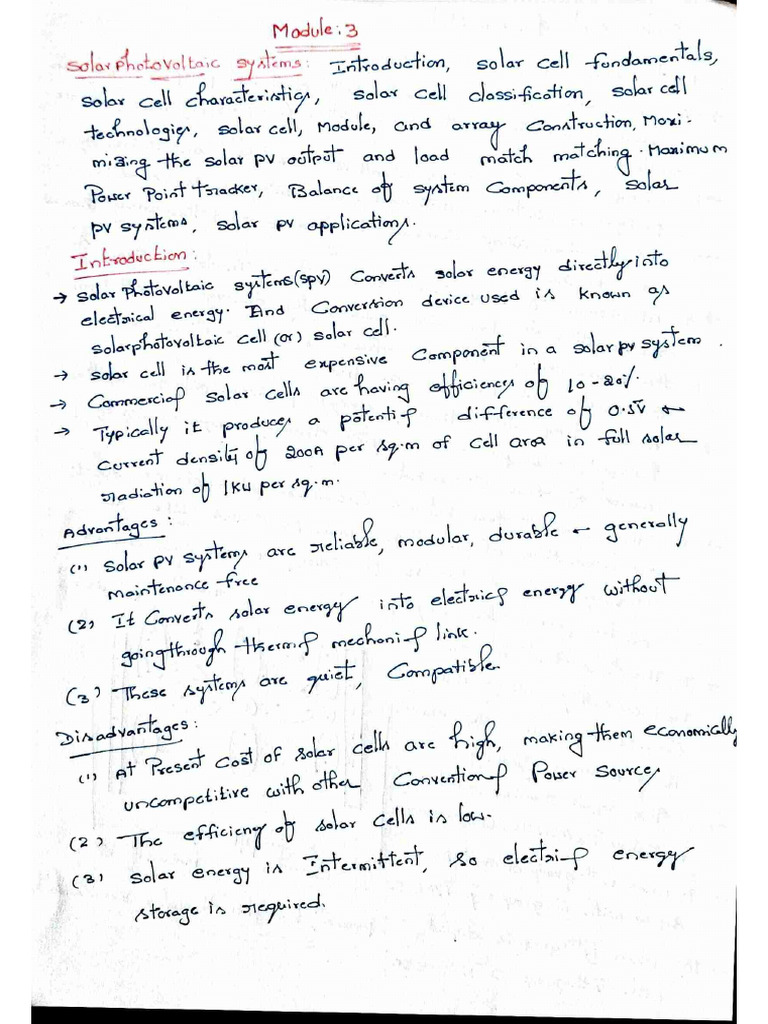 Module:3
Solar photovoltaic systems: Introduction, solar cell fundamentals,
solar cell characteristics, solar cell classification, solar cell
technologies, solar cell, Module, and array Construction, Maxi-
mizing the solar pv output and load match matching. Maximum
Power Point tracker, Balance of system Components, solar
pv systems, solar pv applications.
Introduction:
→ Solar Photovoltaic systems (SPV) Converts solar energy directly into
electrical energy. And Conversion device used is known as
solarphotovoltaic cell (or) solar cell.
→ Solar cell is the most expensive Component in a solar pv system.
→ Commercial solar cells are having efficiences of 10-20%.
→ Typically it produces a potential difference of 0.5V &
Current density of 200A per sq.m of cell area in full solar
radiation of 1KW per sq.m.
Advantages:
(1) Solar PV systems are reliable, modular, durable & generally
maintenance free
(2) It Converts solar energy into electrical energy without
going through thermal mechanical link.
(3) These systems are quiet, Compatible.
Disadvantages:
(1) At Present Cost of solar cells are high, making them economically
uncompetitive with other Conventional Power Sources
(2) The efficiency of solar cells is low.
(3) Solar energy is Intermittent, so electrical energy
storage is required.